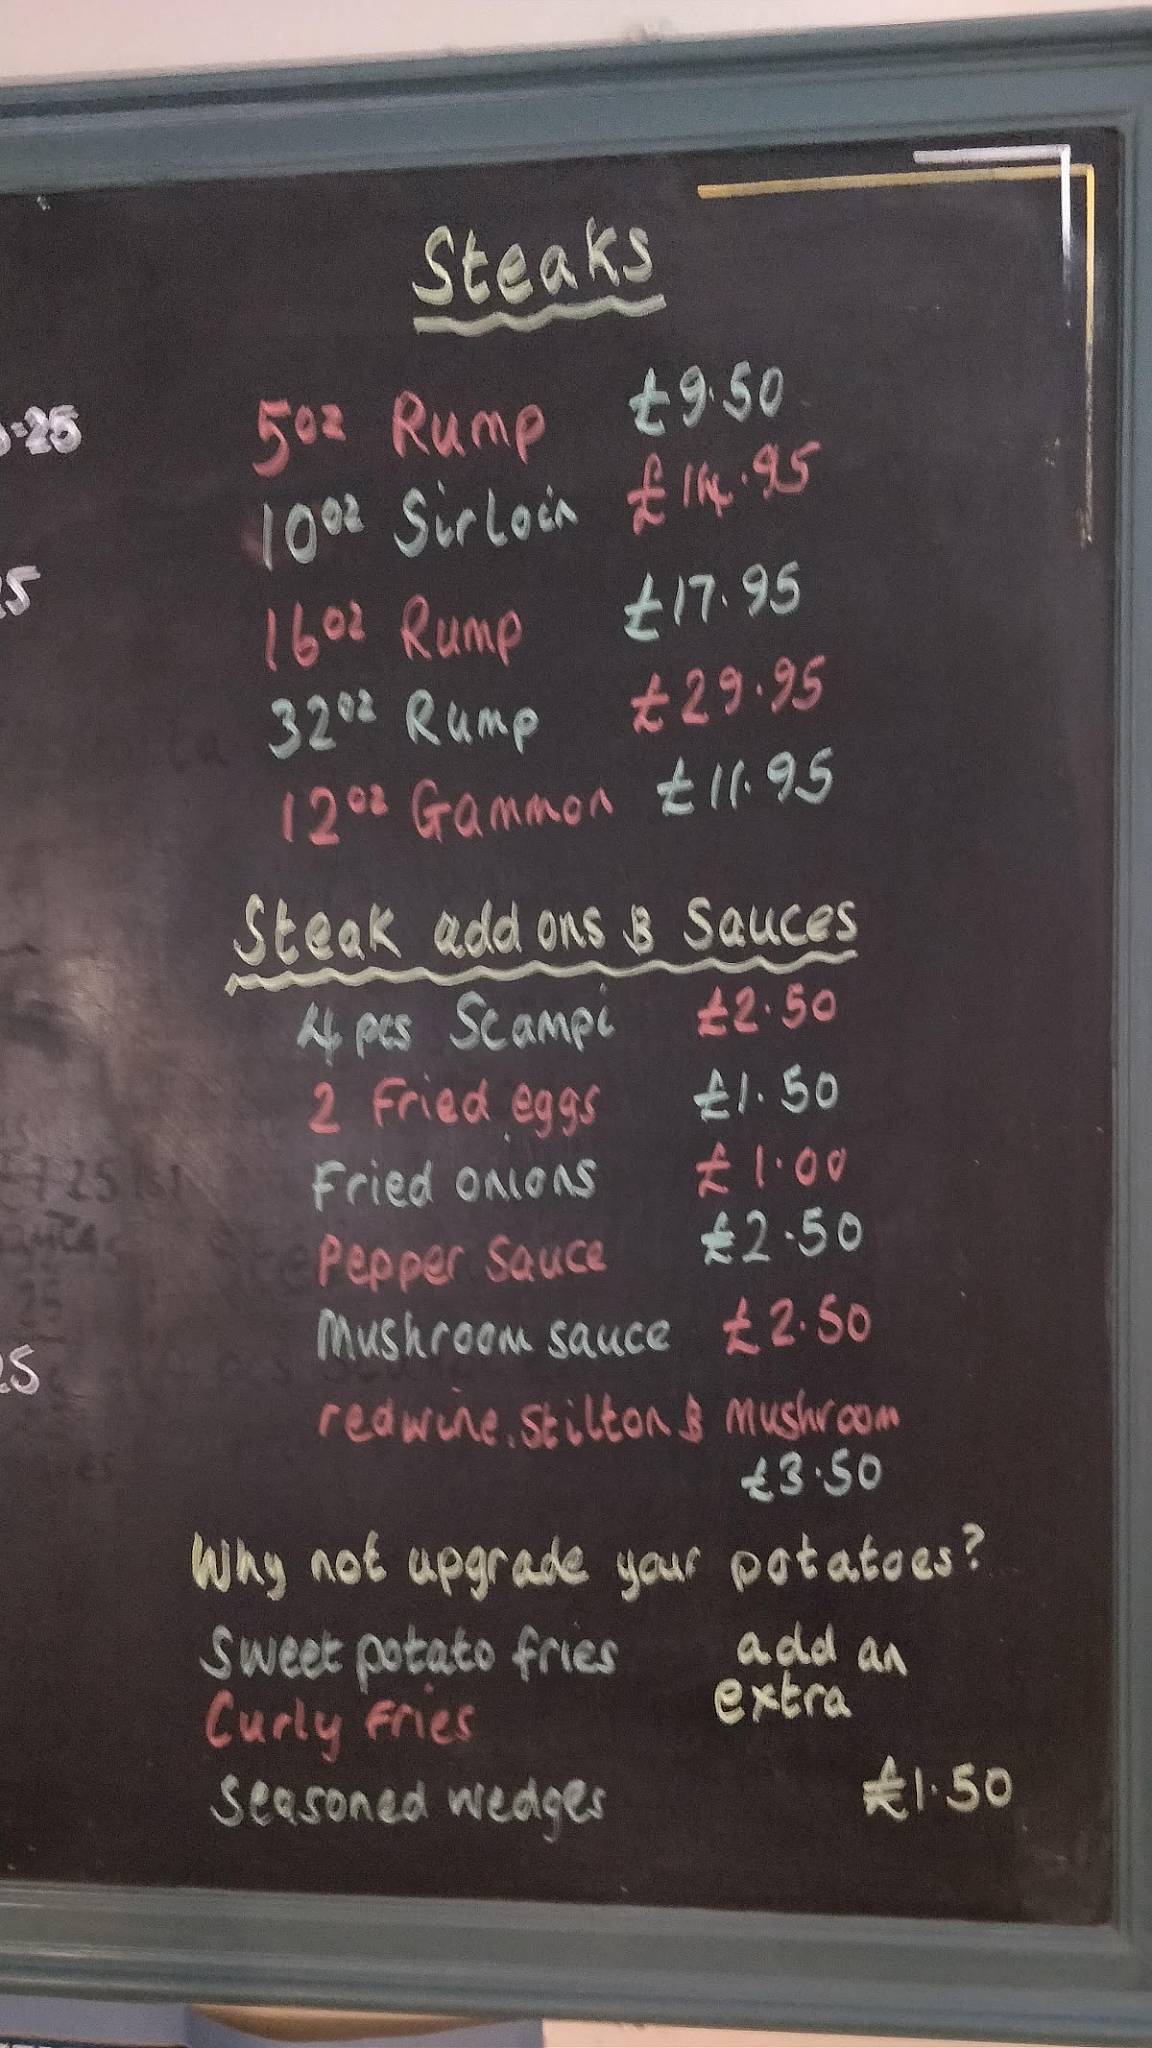 Steaks
5oz Rump £9.50
10oz Sirloin £14.95
16oz Rump £17.95
32oz Rump £29.95
12oz Gammon £11.95
Steak add ons & Sauces
4 pcs Scampi £2.50
2 Fried eggs £1.50
Fried onions £1.00
Pepper Sauce £2.50
Mushroom sauce £2.50
red wine, Stilton & Mushroom
£3.50
Why not upgrade your potatoes?
Sweet potato fries add an
Curly Fries extra
Seasoned wedges £1.50